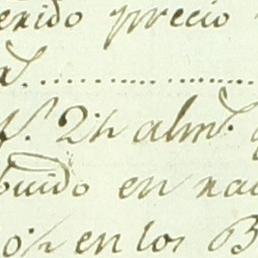 erido precio
2% alm.
buido en na
0% en los B